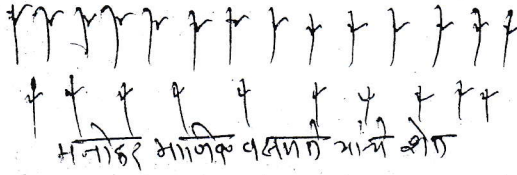 मनोहर माणिक वळमते यांचे शेत